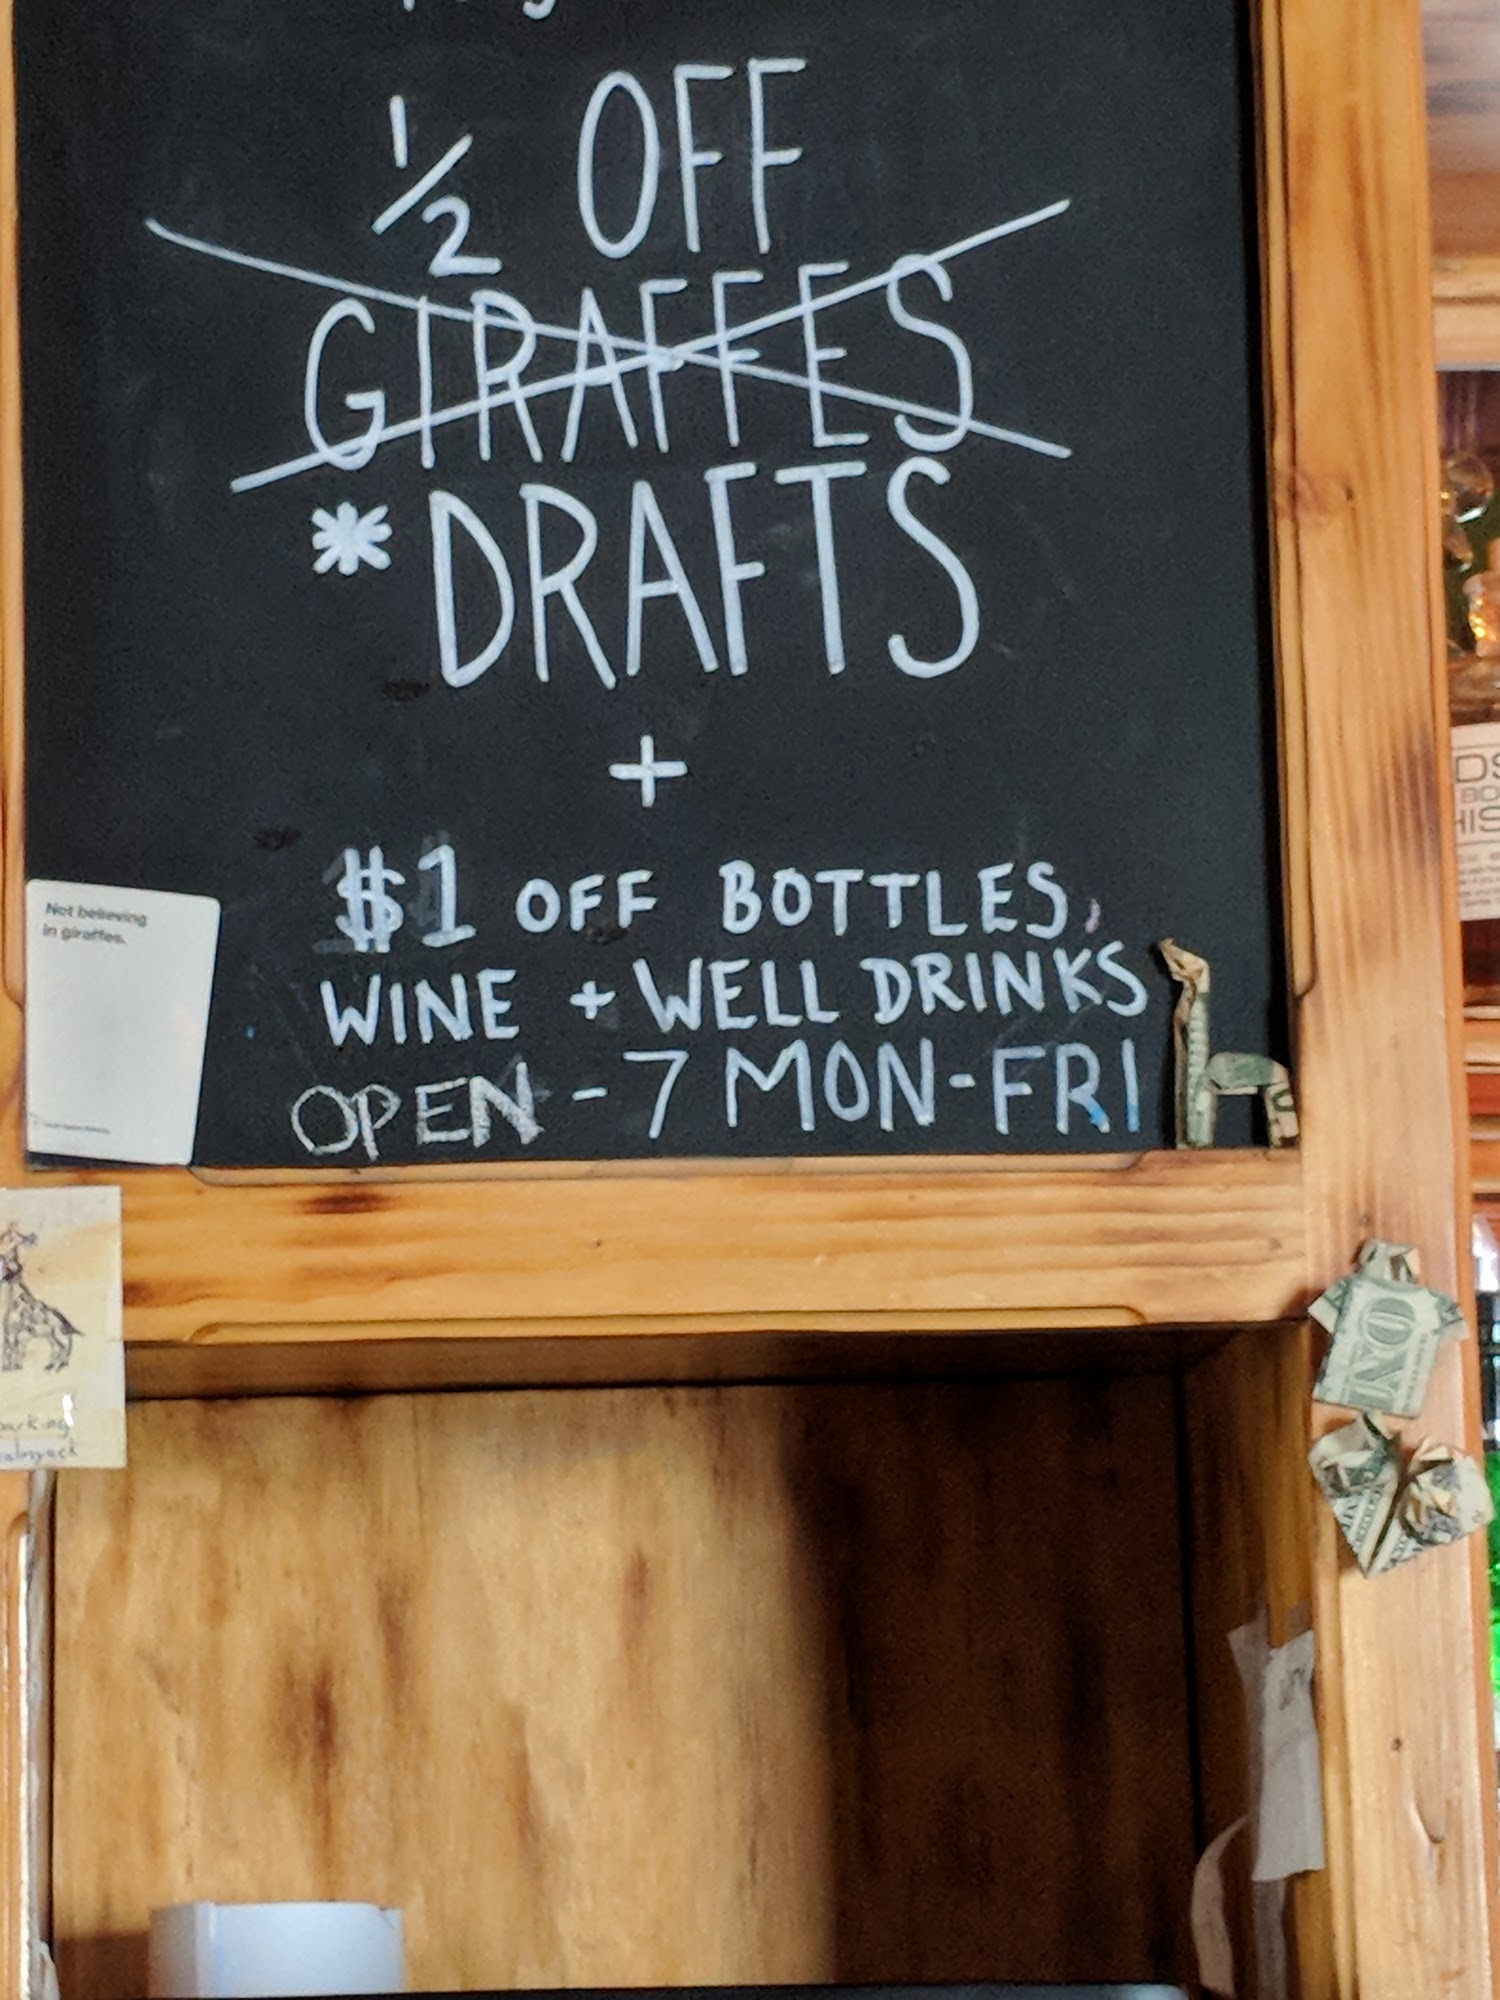 1/2 OFF
GIRAFFES
*DRAFTS
+
$1 OFF BOTTLES,
WINE + WELL DRINKS
OPEN - 7 MON-FRI
Not believing
in giraffes.
ONE